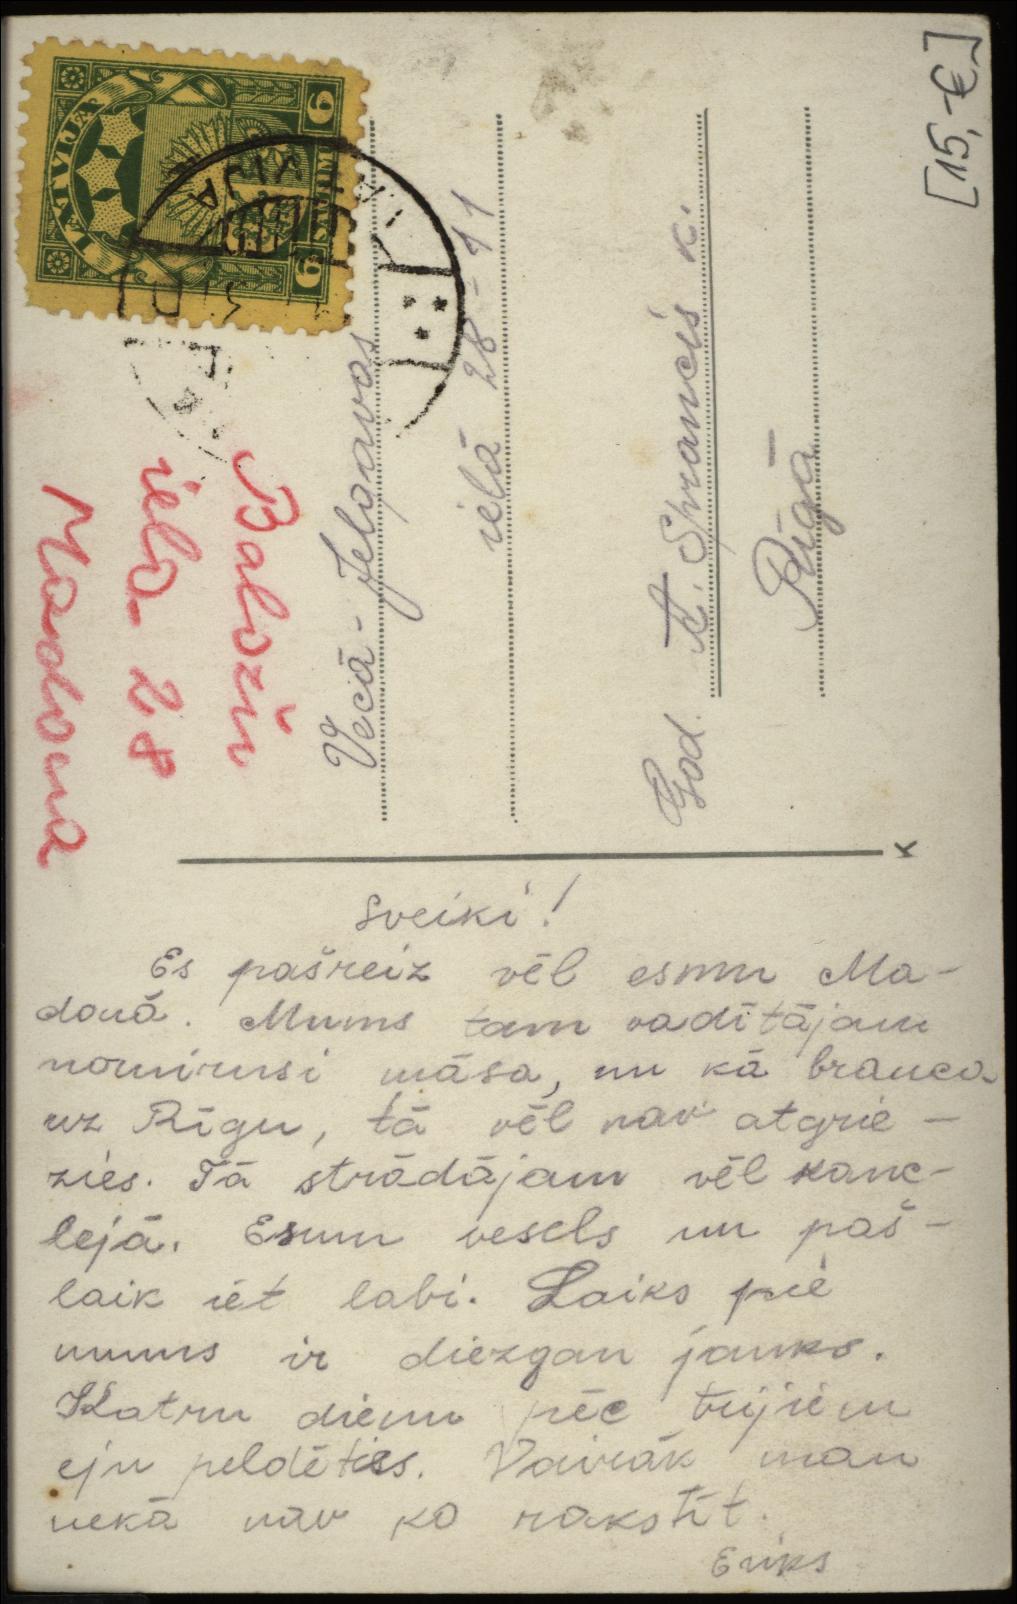 [15,-€]
LATVIJA
6 6
God. A. Sprancis k.
Rīgā
Vecā-Jelgavas
ielā 28-11
Baložu
iela 28
Madona
Sveiki!
Es pašreiz vēl esmu Ma-
donā. Mums tam vadītājam
nomirusi māsa, nu kā brauca
uz Rīgu, tā vēl nav atgrie-
zies. Tā strādājam vēl kanc-
lejā. Esmu vesels un paš-
laik iet labi. Laiks pie
mums ir diezgan jauks.
Katru dienu pēc trijiem
eju peldēties. Vairāk man
nekā nav ko rakstīt.
Eriks